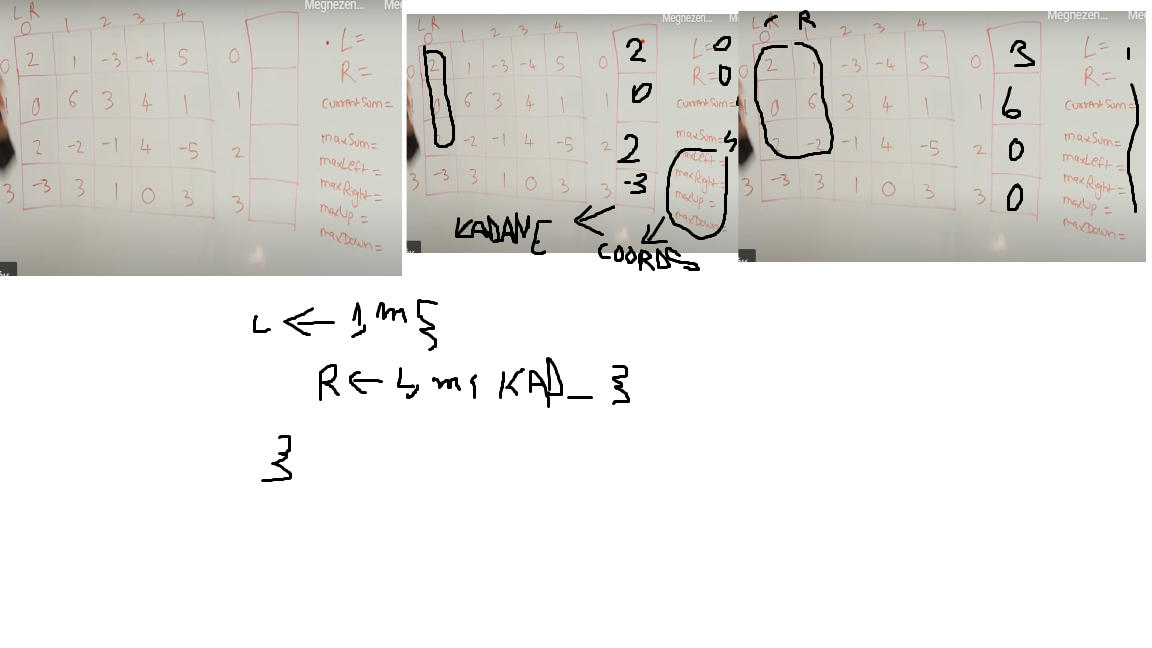 Megnezen...
L R
0 1 2 3 4
0 2 1 -3 -4 5 0
1 0 6 3 4 1 1
2 -2 -1 4 -5 2
3 -3 3 1 0 3 3
L=
R=
currentSum=
maxSum=
maxLeft=
maxRight=
maxUp=
maxDown=
Megnezen...
L R
0 1 2 3 4
0 2 1 -3 -4 5 0 2
0 6 3 4 1 1 0
-2 -1 4 -5 2 2
3 -3 3 1 0 3 3 -3
L=0
R=0
currentSum=
4
maxSum=
maxLeft=
maxRight=
maxUp=
maxDown=
KADANE ← COORDS
Megnezen... Me
R
0 1 2 3 4
0 2 1 -3 -4 5 0 3
0 6 3 4 1 1 6
2 -2 -1 4 -5 2 0
3 -3 3 1 0 3 3 0
L= 1
R=
currentSum=
maxSum=
maxLeft=
maxRight=
maxUp=
maxDown=
L ← 1,m {
R ← L, m { KAD_ }
}